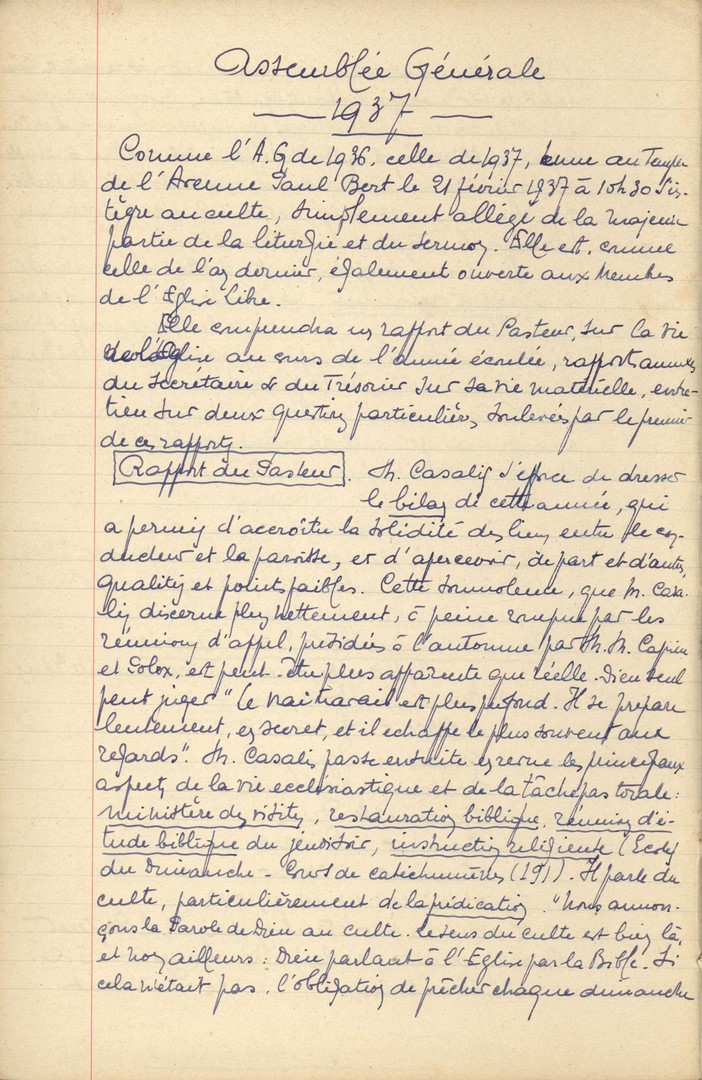 Assemblée Générale
1937
Comme l'A.G de 1936, celle de 1937, tenue au Temple
de l'Avenue Paul Bert le 21 février 1937 à 10h30 s'in-
tègre au culte, simplement allégé de la majeure
partie de la liturgie et du sermon. Elle est, comme
celle de l'an dernier, également ouverte aux Membres
de l'Eglise Libre.
Elle comprendra un rapport du Pasteur, sur la vie
de l'Eglise au cours de l'année écoulée, rapports annuels
du Secrétaire & du Trésorier sur sa vie matérielle, entre-
tien sur deux questions particulières, soulevées par le premier
de ces rapports.
Rapport du Pasteur. M. Casalis s'efforce de dresser
le bilan de cette année, qui
a permis d'accroître la solidité des liens entre le con-
ducteur et la paroisse, et d'apercevoir, de part et d'autre,
qualités et points faibles. Cette somnolence, que M. Casa-
lis discerne plus nettement, à peine rompue par les
réunions d'appel, présidées à l'automne par M. M.
et, est peut-être plus apparente que réelle. Dieu seul
peut juger "le vrai travail est plus profond. Il se prépare
lentement, en secret, et il échappe le plus souvent aux
regards". M. Casalis passe ensuite en revue les principaux
aspects de la vie ecclésiastique et de la tâche pastorale :
ministère des visites, restauration biblique, réunions d'é-
tude biblique du jeudi soir, instruction religieuse (Ecoles
du Dimanche - Cours de catéchumènes (19)). Il parle du
culte, particulièrement de la prédication. "Nous annon-
çons la Parole de Dieu au culte. Le sens du culte est bien là,
et non ailleurs : Dieu parlant à l'Eglise par la Bible. Si
cela n'était pas, l'obligation de prêcher chaque dimanche